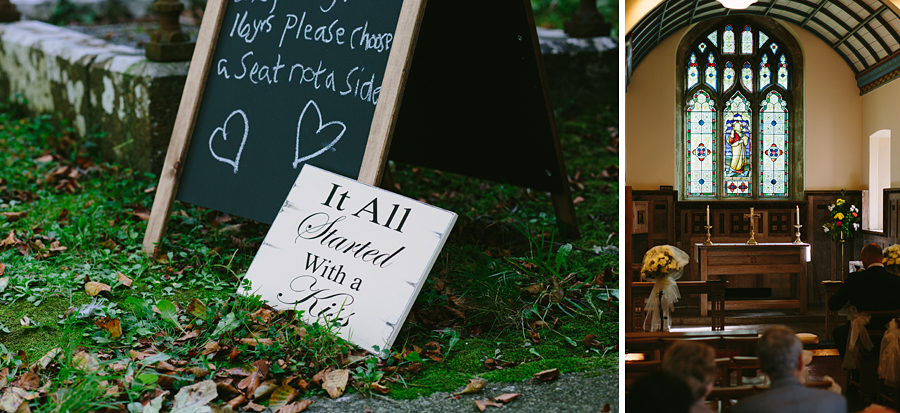 16yrs Please choose
a seat not a side
It All
Started
With a
Kiss